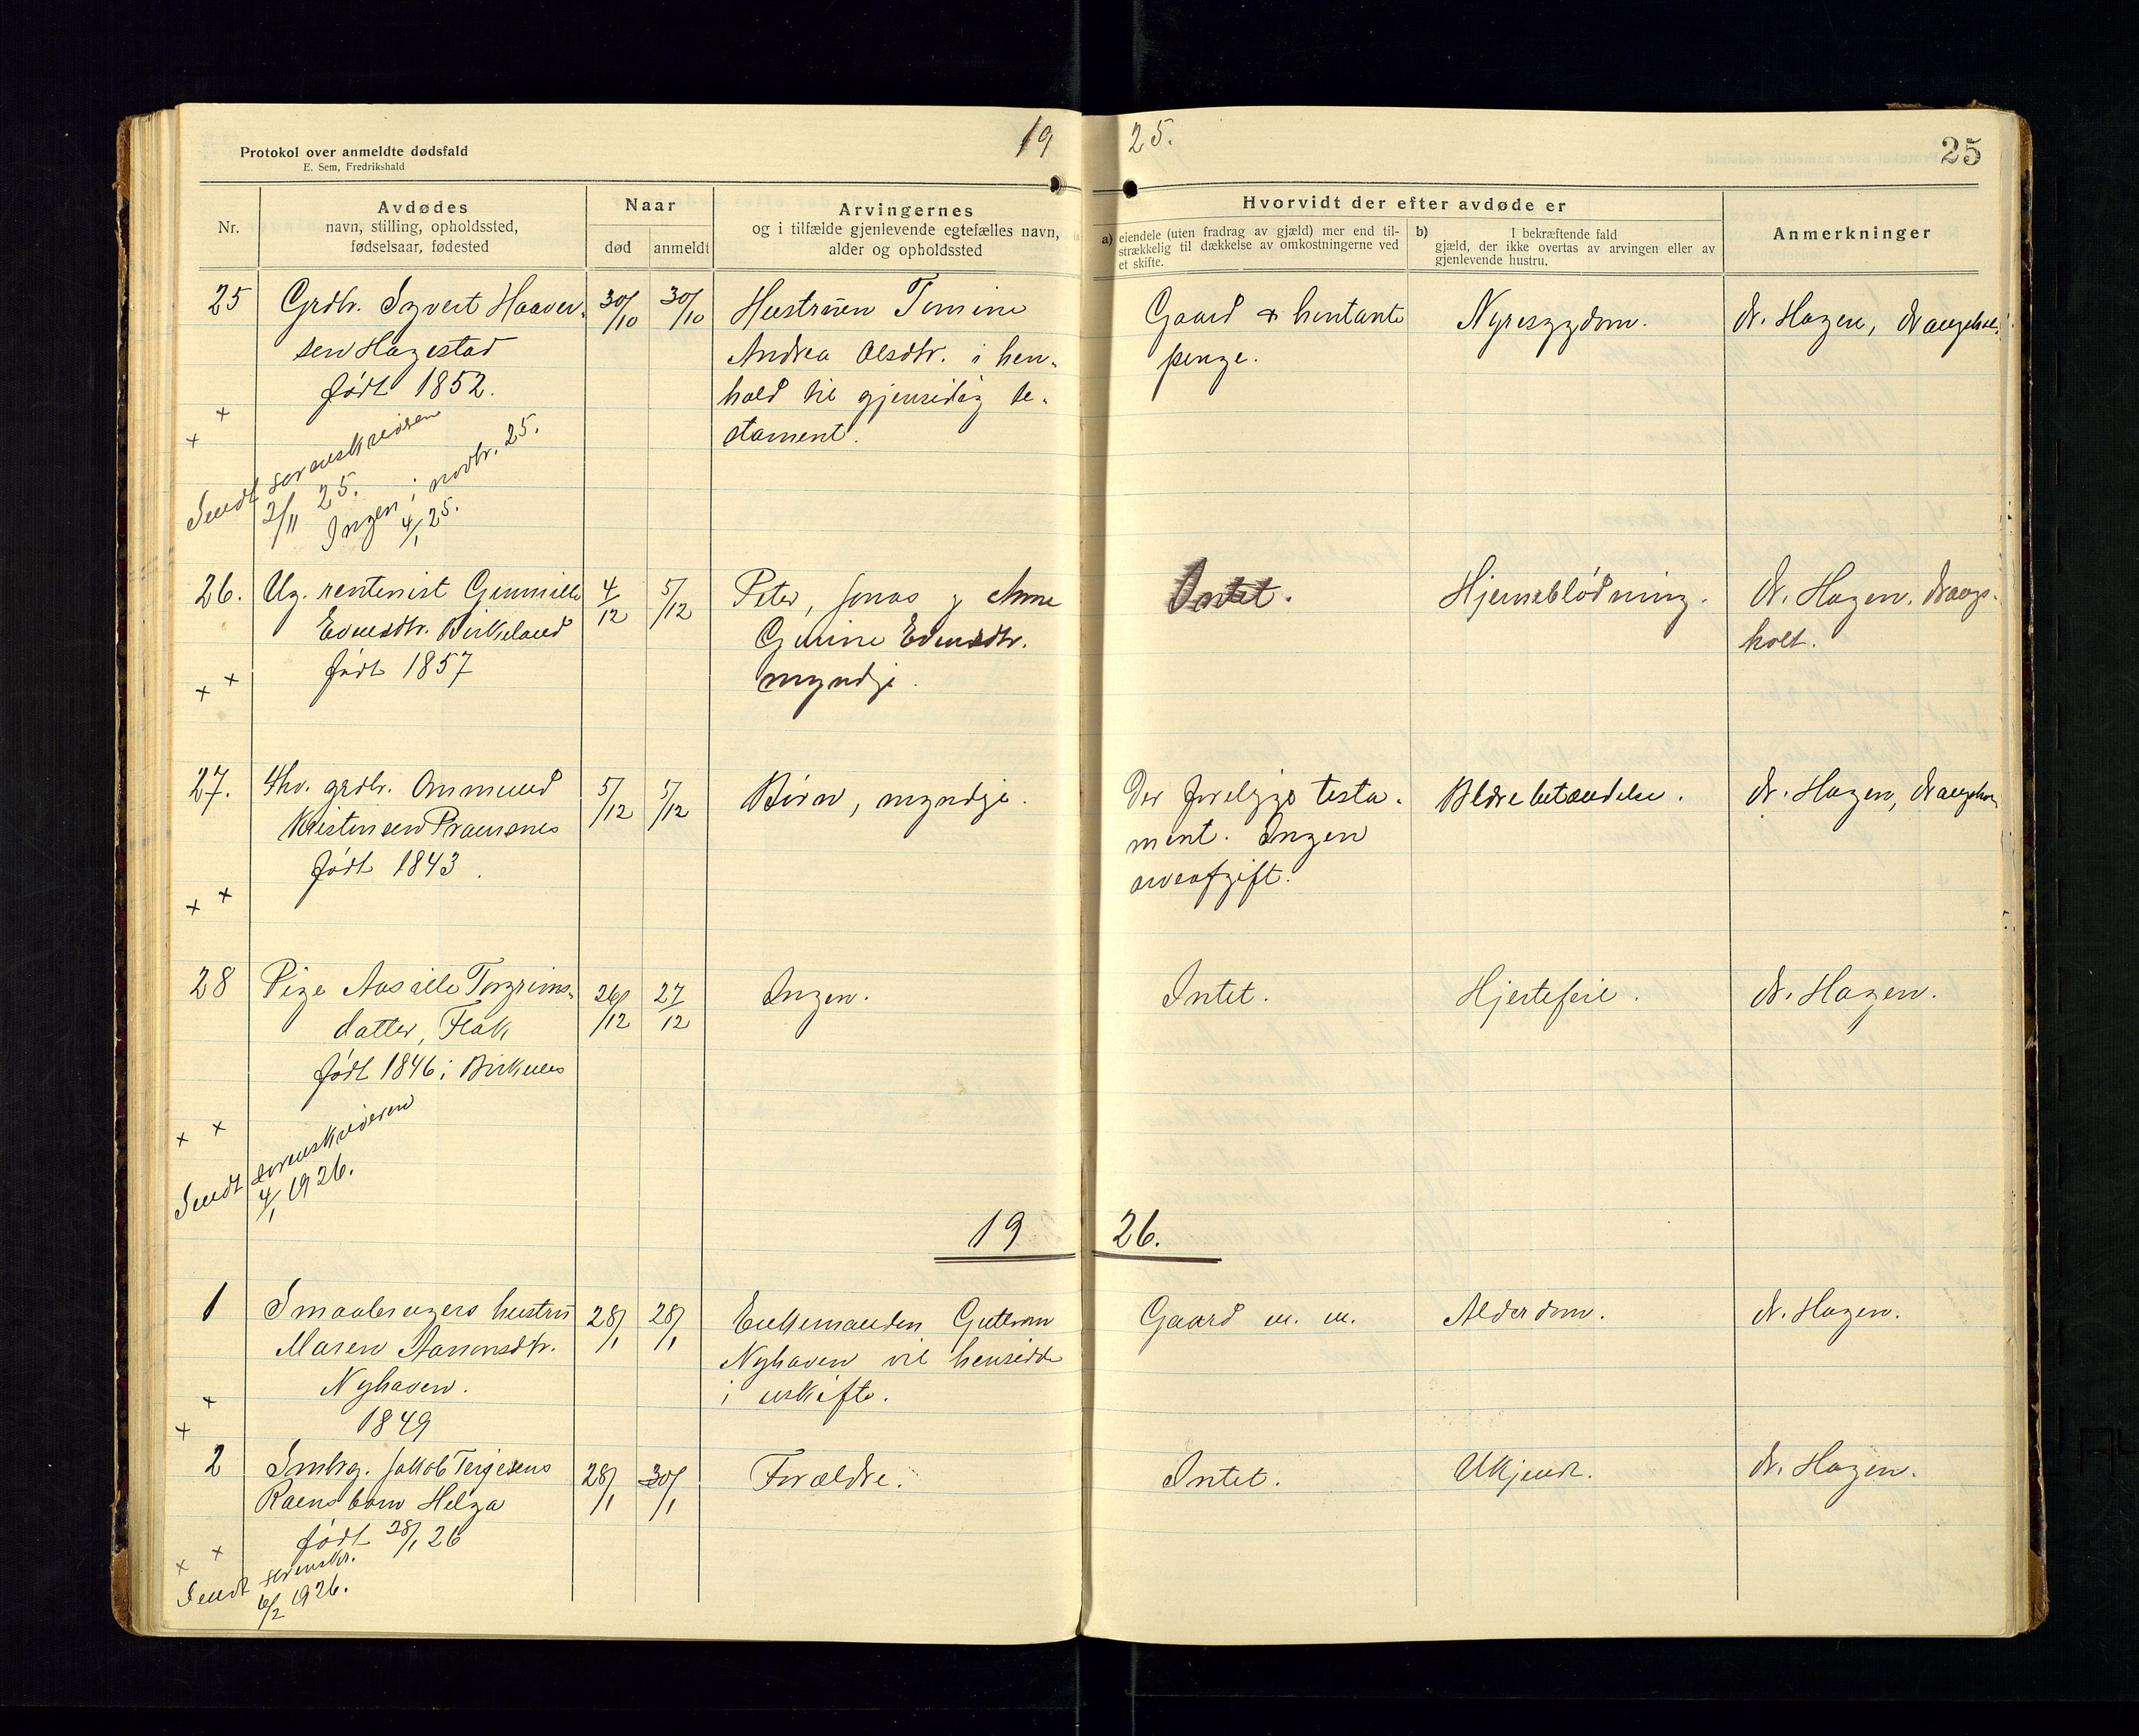 Protokol over anmeldte dødsfald
E. Sem, Fredrikshald
19 25.
25
Nr.
Avdødes
navn, stilling, opholdssted,
fødselsaar, fødested
Naar
død
anmeldt
Arvingernes
og i tilfælde gjenlevende egtefælles navn,
alder og opholdssted
Hvorvidt der efter avdøde er
a) eiendele (uten fradrag av gjæld) mer end til-
strækkelig til dækkelse av omkostningerne ved
et skifte.
b) I bekræftende fald
gjæld, der ikke overtas av arvingen eller av
gjenlevende hustru.
Anmerkninger
25
Grdbr. Sygvert Haaver-
sen Hagestad
født 1852.
30/10
30/10
Hustruen Tomine
Andrea Olsdtr. i hen-
hold til gjensidig te-
stament.
Gaard + kontante
penge.
Nyresygdom.
dr. Hagen,
+
+
Sendt sorenskriveren
2/11 25.
Ingen i novbr. 25.
4/1 25.
26.
Ug. rentenist Gunnille
Evensdtr. Birkeland
født 1857
4/12
5/12
Peter, Jonas g Anne
Gurine Evensdtr.
myndje.
Intet.
Hjerneblødning.
dr. Hagen. Drangs-
holt.
+ +
27.
Fhv. grdbr. Ommund
Kristensen Pramsnes
født 1843.
5/12
5/12
Børn, myndje.
Der foreligge testa-
ment. Ingen
arveafgift.
Blærebetændelse.
dr. Hagen,
+ +
28
Pige Aasille Torgrims-
datter, Flak
født 1846 i Birkenes
26/12
27/12
Ingen.
Intet.
Hjertefeil.
dr. Hagen.
+ +
Sendt sorenskriveren
4/1 1926.
19 26.
1
Smaabrugers hustru
Maren Aanonsdtr.
Nyhaven.
1849
28/1
28/1
Enkemanden Guttorm
Nyhaven vil hensidde
i uskifte.
Gaard m. m.
Alderdom.
dr. Hagen.
+
+
2
Smbrg. Jakob Terjesens
Raens barn Helga
født 28/1 26
28/1
30/1
Forældre.
Intet.
Ukjendt.
dr. Hagen.
+ +
Sendt sorenskr.
6/2 1926.